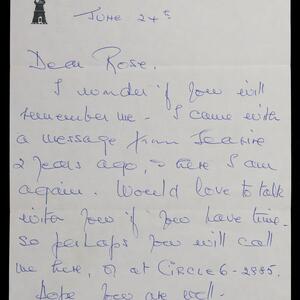 June 24th
Dear Rose.
I wonder if you will
remember me - I came with
a message from Jeanne
2 years ago, & here I am
again. Would love to talk
with you if you have time.
so perhaps you will call
me here, at CIRCLE 6-2885.
Hope you are well.